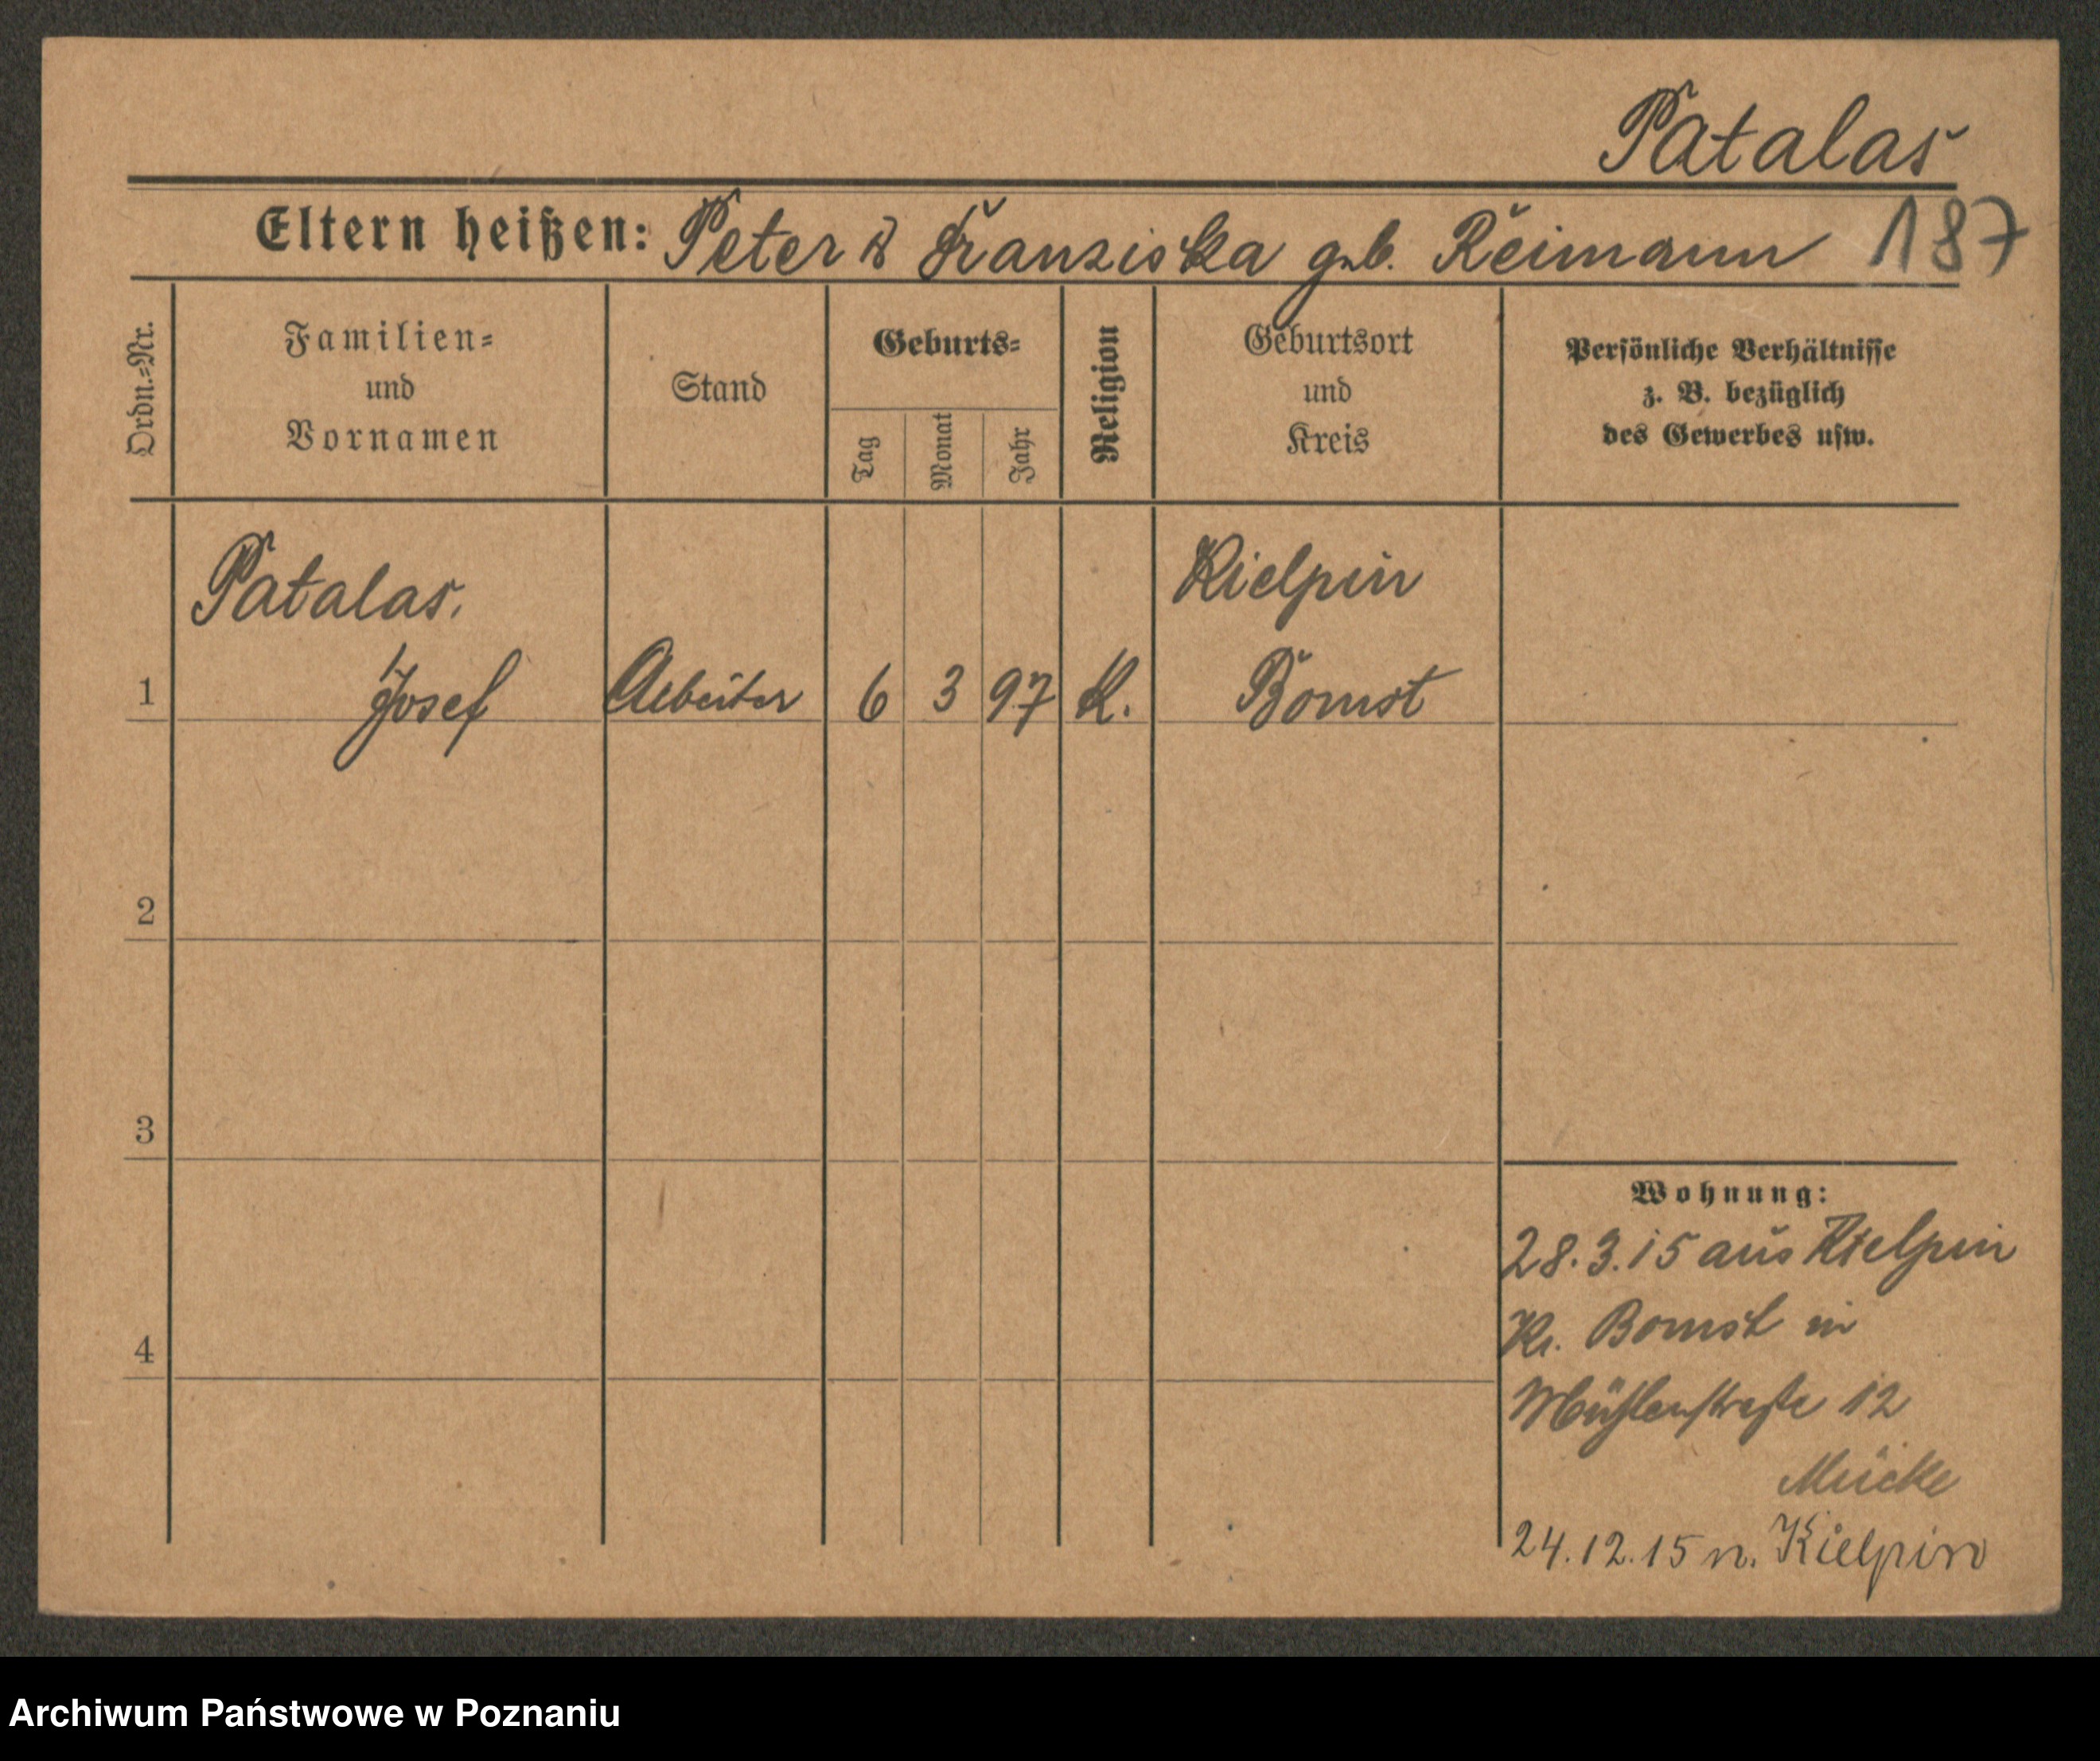 Patalas
Eltern heißen: Peter & Franziska geb. Reimann 187
Ordn.=Nr.
Familien=
und
Vornamen
Stand
Geburts=
Tag
Monat
Jahr
Religion
Geburtsort
und
Kreis
Persönliche Verhältnisse
z. B. bezüglich
des Gewerbes usw.
Patalas. Kielpin
1 Josef Arbeiter 6 3 97 K. Bomst
2
3
4
Wohnung:
28.3.15 aus Kielpin
Kr. Bomst in
Mühlenstraße 12
Mücke
24.12.15 n. Kielpin
Archiwum Państwowe w Poznaniu